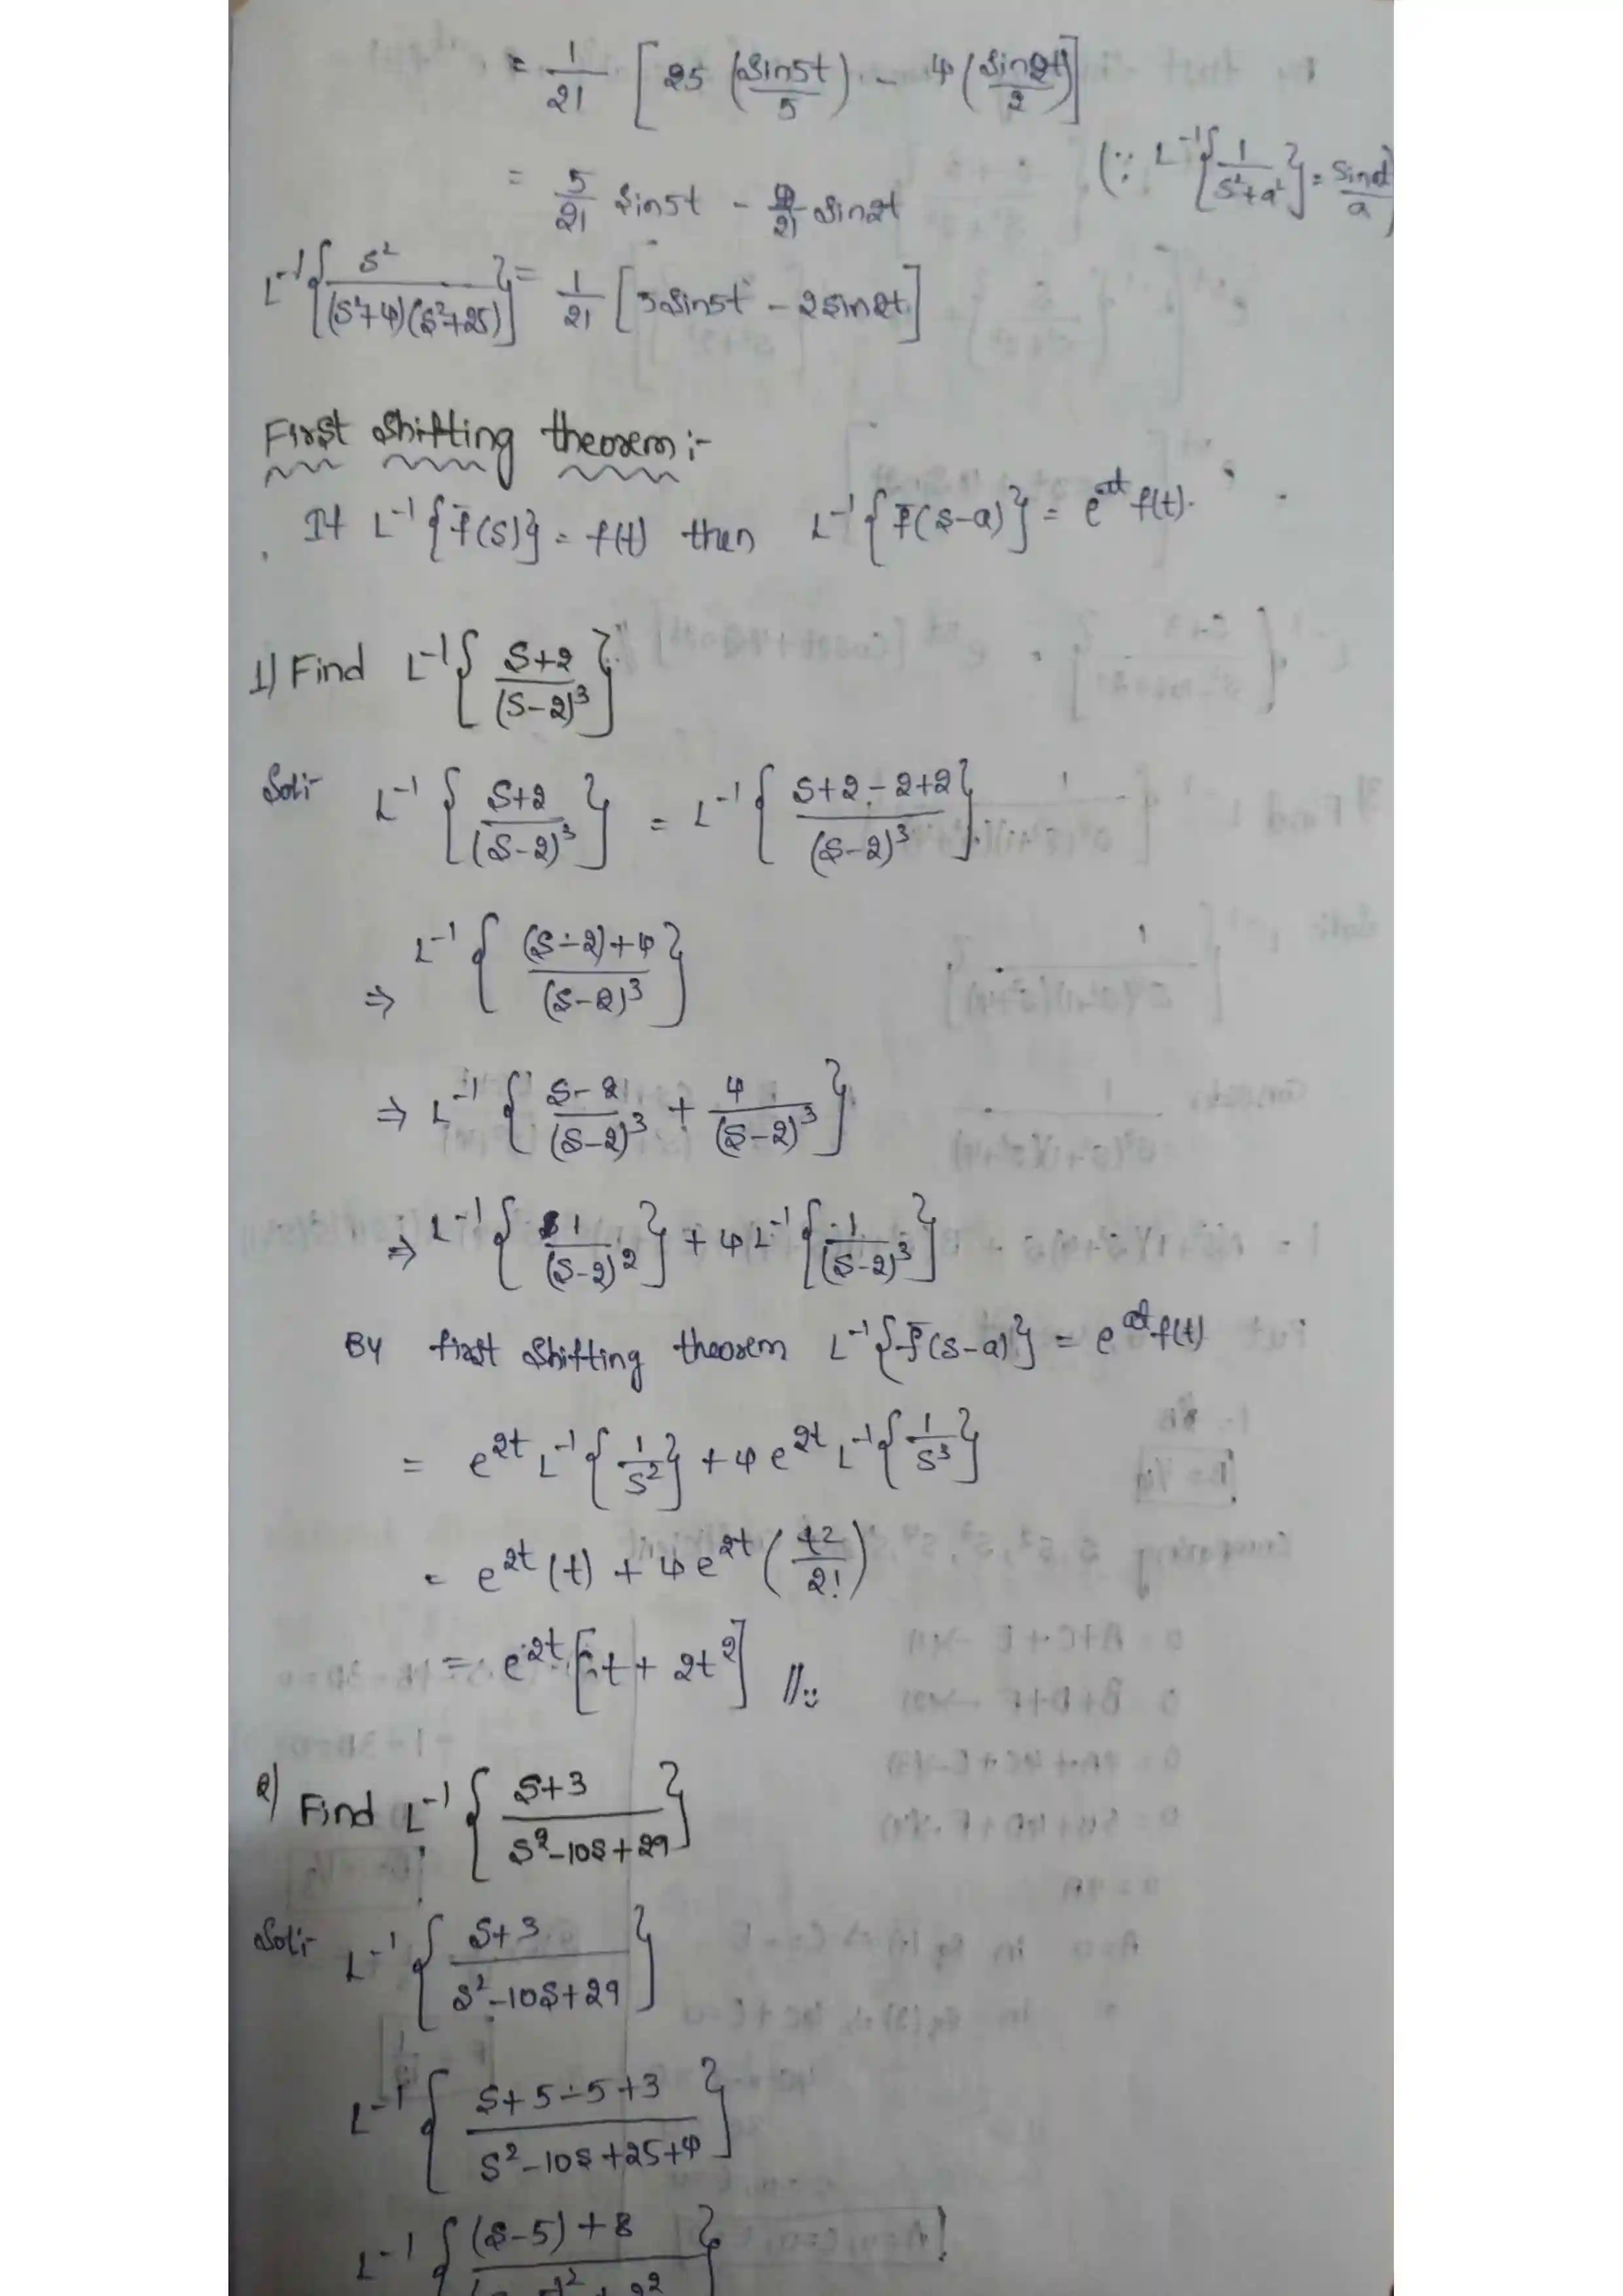 = 1/21 [25 (sin5t/5) - 4 (sin2t/2)]
(∵ L⁻¹{1/(s²+a²)} = sinat/a)
= 5/21 sin5t - 2/21 sin2t
L⁻¹{s²/((s²+4)(s²+25))} = 1/21 [5sin5t - 2sin2t]
First shifting theorem :-
If L⁻¹{f̄(s)} = f(t) then L⁻¹{f̄(s-a)} = e^at f(t).
1) Find L⁻¹{(s+2)/(s-2)³}
Sol:- L⁻¹{(s+2)/(s-2)³} = L⁻¹{(s+2-2+2)/(s-2)³}
⇒ L⁻¹{((s-2)+4)/(s-2)³}
⇒ L⁻¹{(s-2)/(s-2)³ + 4/(s-2)³}
⇒ L⁻¹{1/(s-2)²} + 4L⁻¹{1/(s-2)³}
By first shifting theorem L⁻¹{f̄(s-a)} = e^at f(t)
= e^2t L⁻¹{1/s²} + 4e^2t L⁻¹{1/s³}
= e^2t (t) + 4e^2t (t²/2!)
= e^2t [t + 2t²] //
2) Find L⁻¹{(s+3)/(s²-10s+29)}
Sol:- L⁻¹{(s+3)/(s²-10s+29)}
L⁻¹{(s+5-5+3)/(s²-10s+25+4)}
L⁻¹{((s-5)+8)/